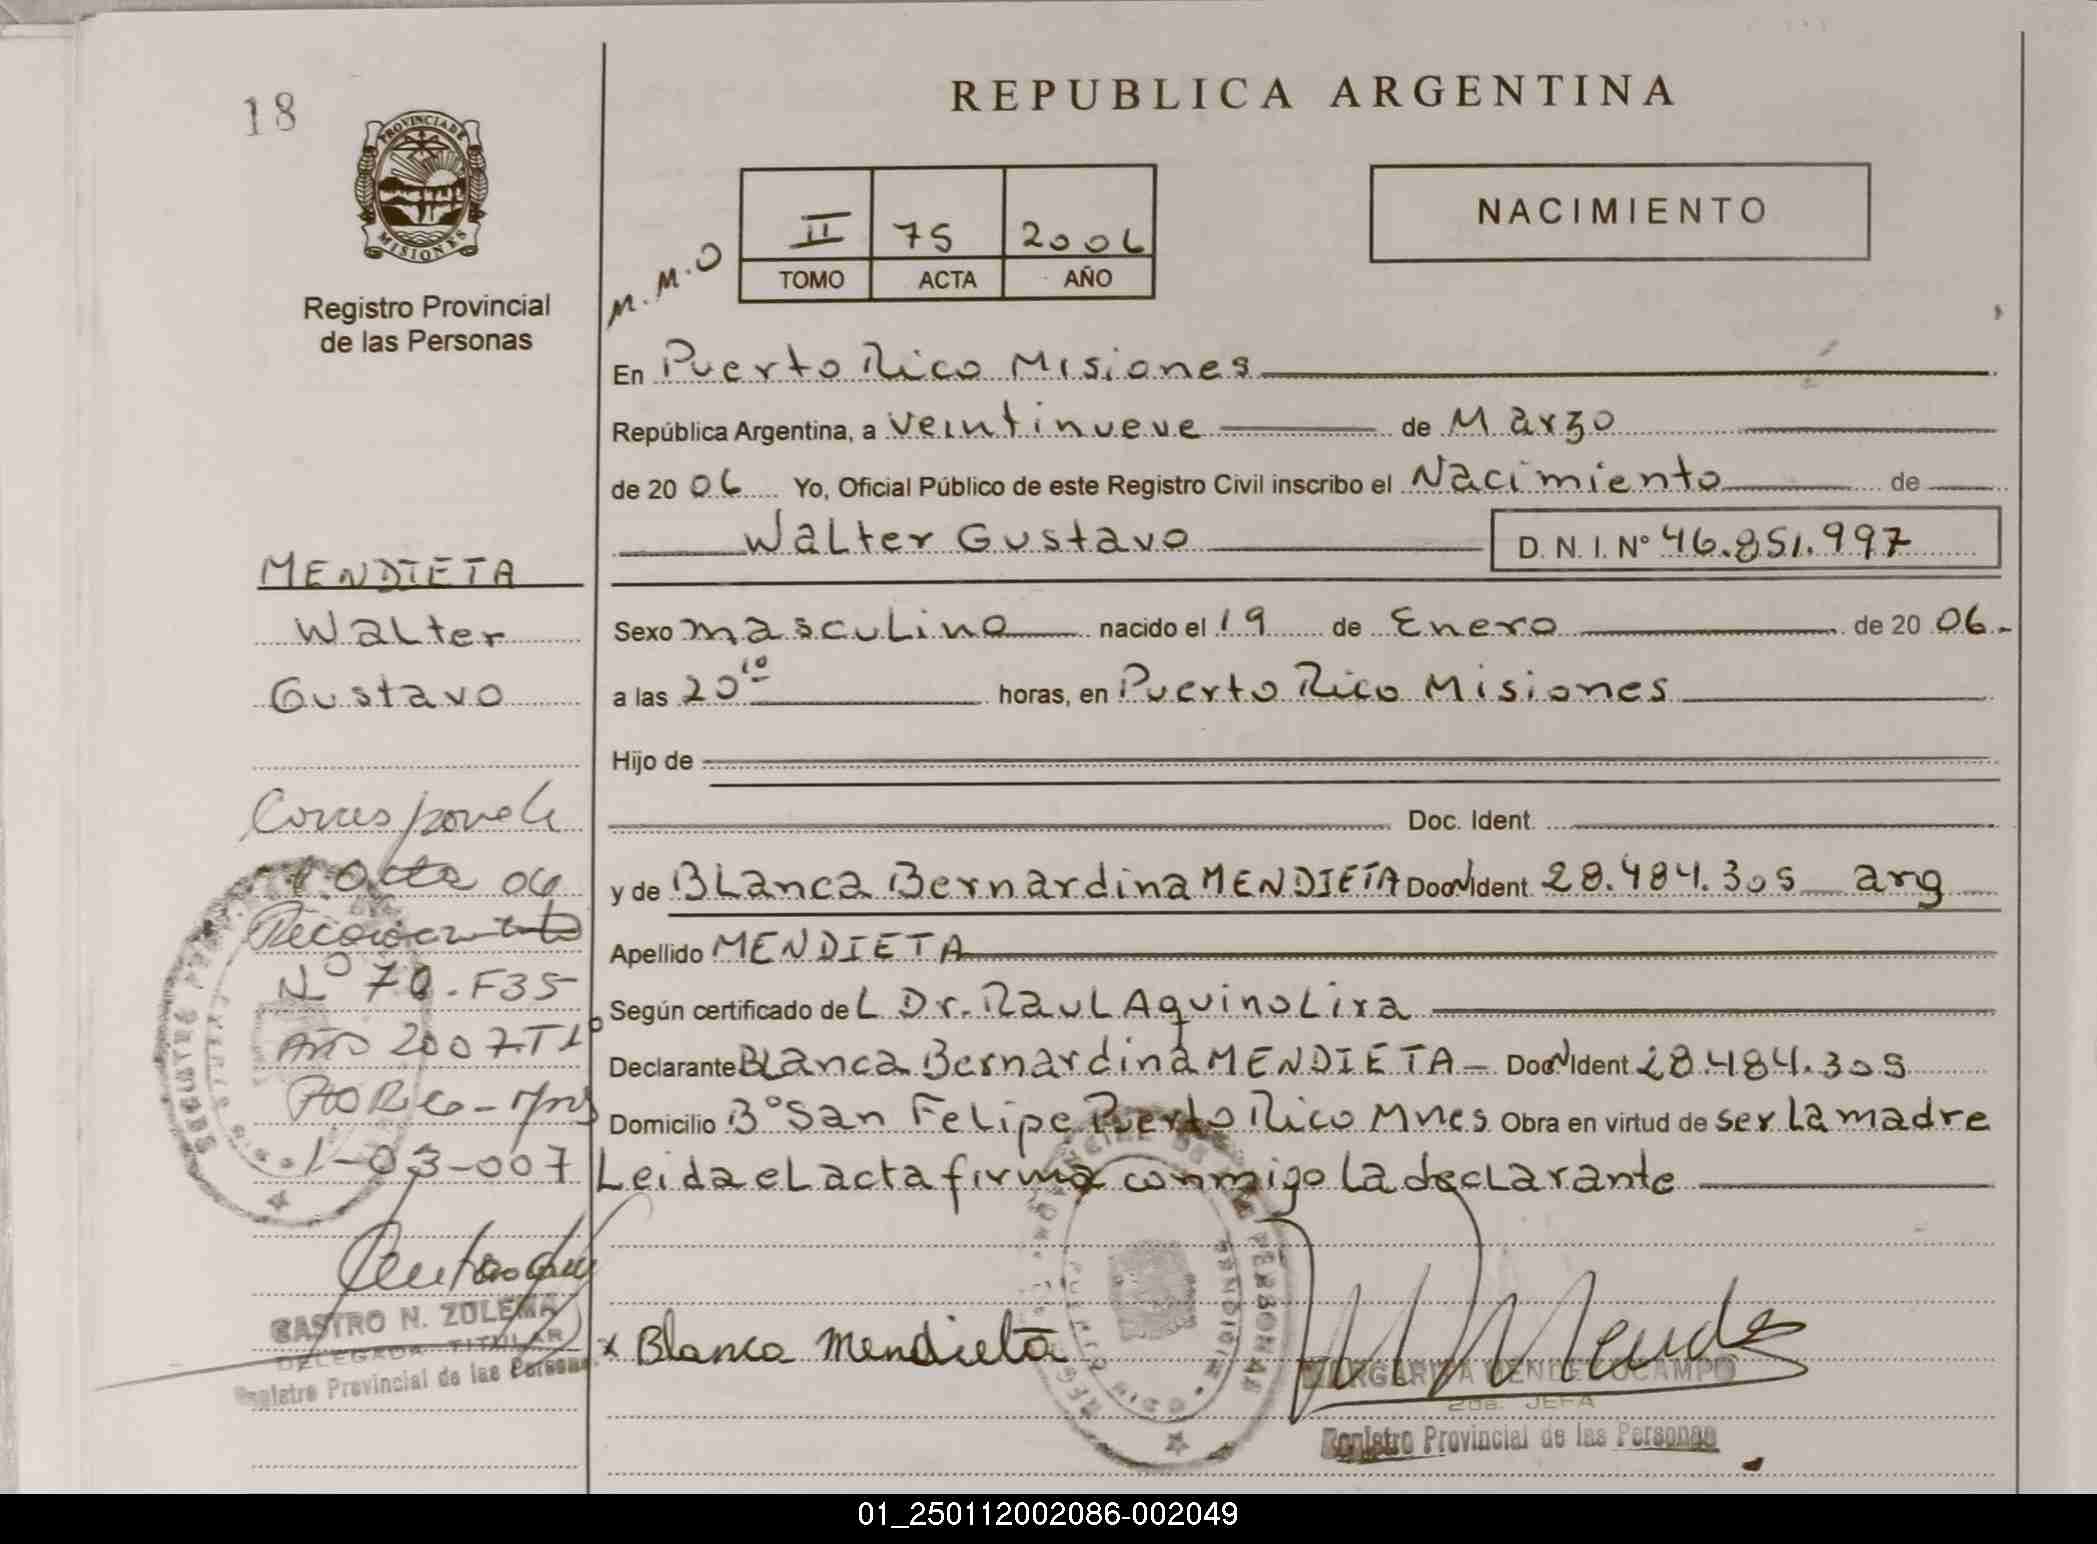 18
PROVINCIA DE
MISIONES
Registro Provincial
de las Personas
REPUBLICA ARGENTINA
NACIMIENTO
II 75 2006
TOMO ACTA AÑO
M.M.O
En Puerto Rico Misiones
República Argentina, a veintinueve de Marzo
de 2006 Yo, Oficial Público de este Registro Civil inscribo el Nacimiento de
Walter Gustavo D. N. I. Nº 46.851.997
Sexo masculino nacido el 19 de Enero de 2006.-
a las 20 10 horas, en Puerto Rico Misiones
Hijo de
Doc. Ident.
y de Blanca Bernardina MENDIETA Doc Ident. 28.484.305 arg
Apellido MENDIETA
Según certificado del Dr. Raul Aquino Lira
Declarante Blanca Bernardina MENDIETA - Doc Ident 28.484.305
Domicilio Bº San Felipe Puerto Rico Mnes Obra en virtud de ser la madre
Leida el acta firma conmigo la declarante
MENDIETA
Walter
Gustavo
Corresponde
Acta 06
Reconocimiento
Nº 70 - F35
Año 2007 - T1º
Pto Rico - Mnes
1-03-007
CASTRO N. ZULEMA
DELEGADA TITULAR
Registro Provincial de las Personas
x Blanca Mendieta
MARGARITA MENDEZ OCAMPO
2da. JEFA
Registro Provincial de las Personas
01_250112002086-002049